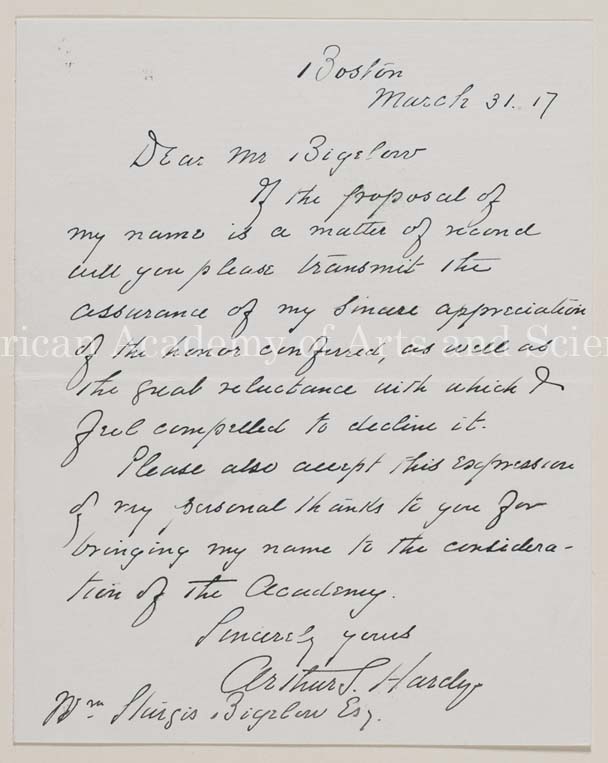 Boston
March 31. 17
Dear Mr Bigelow
If the proposal of
my name is a matter of record
will you please transmit the
assurance of my sincere appreciation
rican Academy of Arts and Scien
of the honor conferred, as well as
the great reluctance with which I
feel compelled to decline it.
Please also accept this expression
of my personal thanks to you for
bringing my name to the considera-
tion of the Academy.
Sincerely yours
Arthur S. Hardy.
Wm Sturgis Bigelow Esq.